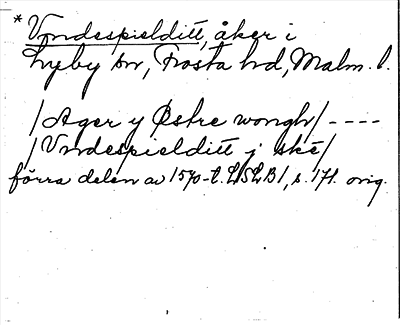 * Vndespielditt, åker i
Lyby sn, Frosta hd, Malm. l.
/Ager y Østre wongh/ ----
/Vndespielditt j skē/
förra delen av 1570-t. LSLB1, s. 171. orig.